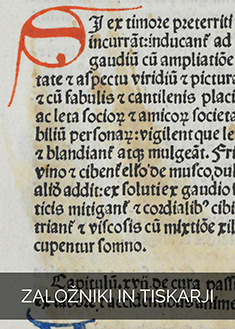 Si ex timore preterriti
incurrāt: inducant̄ ad
gaudiū cū ampliatiōe
tate ⁊ aspectu viridiū ⁊ pictura
⁊ cū fabulis ⁊ cantilenis placi
ac leta socioꝝ ⁊ amicoꝝ societa
biliū personaꝝ: vigilent que le
⁊ blandiant̄ atqꝫ mulgeāt. Fri
vino ⁊ cibent̄ de musco, dul
addit: ex soluti ex gaudio
ticis mitigant̄ ⁊ cordialibꝰ cibi
triant̄ ⁊ viscosis cū mixtiōe xil
cupentur somno.
Capitulū. xvij. de cura pass
ZALOŽNIKI IN TISKARJI